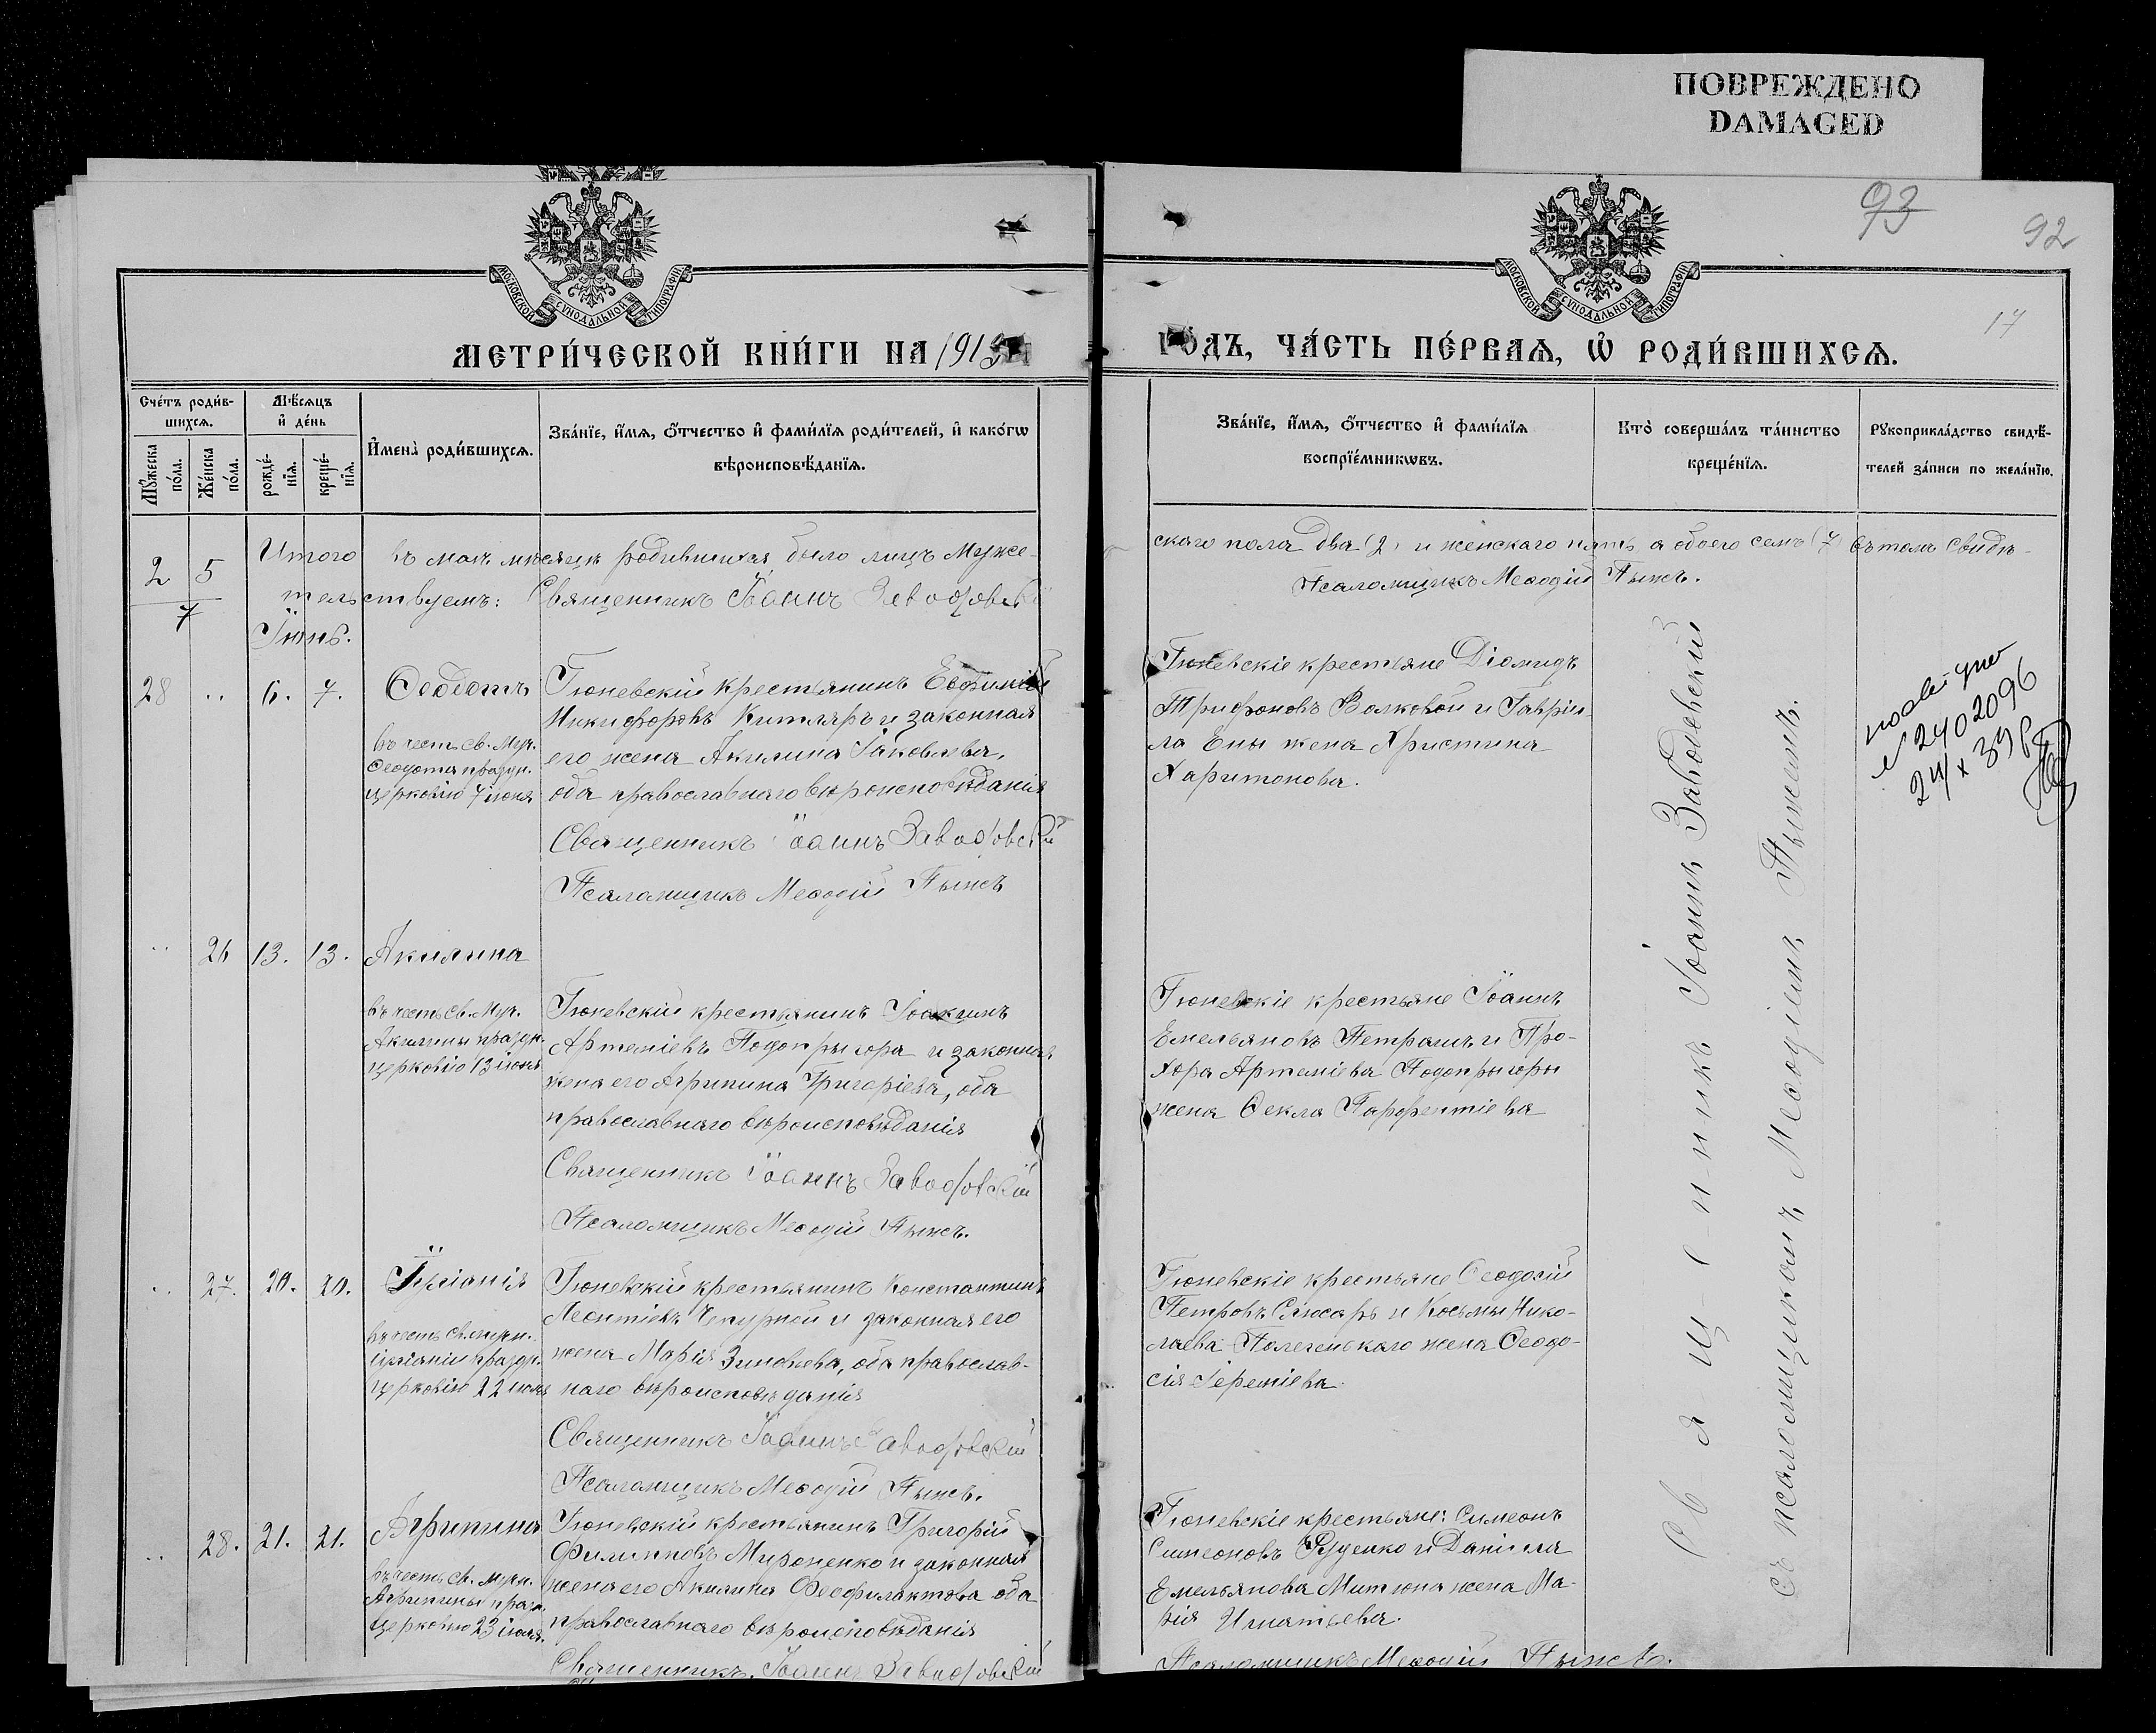 ПОВРЕЖДЕНО
DAMAGED
93
92
17
МОСКОВСКОЙ СУНОДАЛЬНОЙ ТИПОГРАФІИ
МОСКОВСКОЙ СУНОДАЛЬНОЙ ТИПОГРАФІИ
МЕТРИ́ЧЕСКОЙ КНИ́ГИ НА 1913
ГО́ДЪ, ЧА́СТЬ ПЕ́РВАЯ, Ѡ҆ РОДИ́ВШИХСЯ.
Сче́тъ роди́в-
шихся.
Мꙋ́жеска по́ла.
Же́нска по́ла.
Мѣ́сяцъ
и҆ де́нь
рожде́-
нїя.
креще́-
нїя.
И҆мена̀ роди́вшихся.
Зва́нїе, и҆́мя, ѻ҆́тчество и҆ фами́лїя роди́телей, и҆ како́гѡ
вѣроисповѣ́данїя.
Зва́нїе, и҆́мя, ѻ҆́тчество и҆ фами́лїя
воспрїе́мникѡвъ.
Кто̀ соверша́лъ та́инство
креще́нїя.
Рꙋкоприкла́дство свидѣ́-
телей за́писи по жела́нїю.
2 5 Итого въ маѣ мѣсяцѣ родившихся было лицъ муже-
скаго пола два (2) и женскаго пять а обоего семь (7) въ томъ свидѣ-
7 тельствуемъ: Священникъ Іоаннъ Заводовскій
Псаломщикъ Меѳодій Пыжъ.
Іюнь.
28 .. 6. 7. Ѳеодотъ
въ честь св. Муч.
Ѳеодота праздн.
церковію 7 іюня
Гюневскій крестьянинъ Евфимій
Никифоровъ Китляръ и законная
его жена Акилина Іаковлева,
оба православнаго вѣроисповѣданія
Священникъ Іоаннъ Заводовскій
Псаломщикъ Меѳодій Пыжъ
Гюневскіе крестьяне Діомидъ
Трифоновъ Волковой и Гаврі-
ла Ены жена Христина
Харитонова.
№ 2402096
.. 26 13. 13. Акилина
въ честь св. Муч.
Акилины праздн.
церковію 13 іюня
Гюневскій крестьянинъ Іоакимъ
Артеміевъ Подопрыгора и законная
жена его Агрипина Григоріева, оба
православнаго вѣроисповѣданія
Священникъ Іоаннъ Заводовскій
Псаломщикъ Меѳодій Пыжъ.
Гюневскіе крестьяне Іоаннъ
Емельяновъ Петрашъ и Про-
хора Артеміева Подопрыгоры
жена Ѳекла Парфентіева
.. 27. 20. 20. Іуліанія
въ честь св. мучн.
Іуліаніи праздн.
церковію 22 іюня
Гюневскій крестьянинъ Константинъ
Леонтіевъ Чепурной и законная его
жена Марія Зиновьева, оба православ-
наго вѣроисповѣданія
Священникъ Іоаннъ Заводовскій
Псаломщикъ Меѳодій Пыжъ.
Гюневскіе крестьяне Ѳеодосій
Петровъ Слюсарь и Косьмы Нико-
лаева жена Ѳеодо-
сія Іереміева.
.. 28. 21. 21. Агрипина
въ честь св. мучн.
Агрипины празд.
церковію 23 іюня.
Гюневскій крестьянинъ Григорій
Филипповъ Мироненко и законная
жена его Акилина Феофилактова оба
православнаго вѣроисповѣданія
Священникъ Іоаннъ Заводовскій
Гюневскіе крестьяне: Симеонъ
Симеоновъ Руденко и Даніила
Емельянова Митюна жена Ма-
рія Игнатьева.
Псаломщикъ Меѳодій Пыжъ.
Священникъ Іоаннъ Заводовскій
съ псаломщикомъ Меѳодіемъ Пыжемъ.